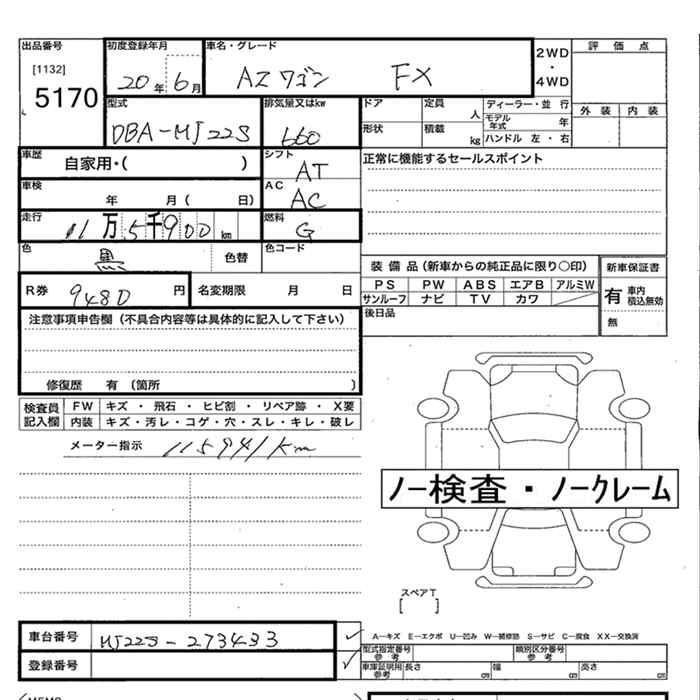 出品番号 初度登録年月 車名・グレード 2WD・4WD 評価点
[1132]
5170 20年6月 AZワゴン FX
型式 排気量又はkw ドア 定員 人 ディーラー・並行 外装 内装
DBA-MJ22S 660 形状 積載 kg モデル年式 年 ハンドル 左・右
車歴 自家用・( ) シフト AT 正常に機能するセールスポイント
車検 年 月( 日) AC AC
走行 11万5千900km 燃料 G
色 黒 色替 色コード
装備品(新車からの純正品に限り○印) 新車保証書
R券 9480円 名変期限 月 日 PS PW ABS エアB アルミW 有 車内 積込無効
サンルーフ ナビ TV カワ
後日品 無
注意事項申告欄(不具合内容等は具体的に記入して下さい)
修復歴 有 〔箇所 〕
検査員記入欄 FW キズ・飛石・ヒビ割・リペア跡・X要
内装 キズ・汚レ・コゲ・穴・スレ・キレ・破レ
メーター指示 115941km
ノー検査・ノークレーム
スペアT
[ ]
車台番号 MJ22S-273433
A―キズ E―エクボ U―凹み W―補修跡 S―サビ C―腐食 XX―交換済
型式指定番号 参考 類別区分番号 参考
登録番号 車庫証明用 参考 長さ cm 幅 cm 高さ cm